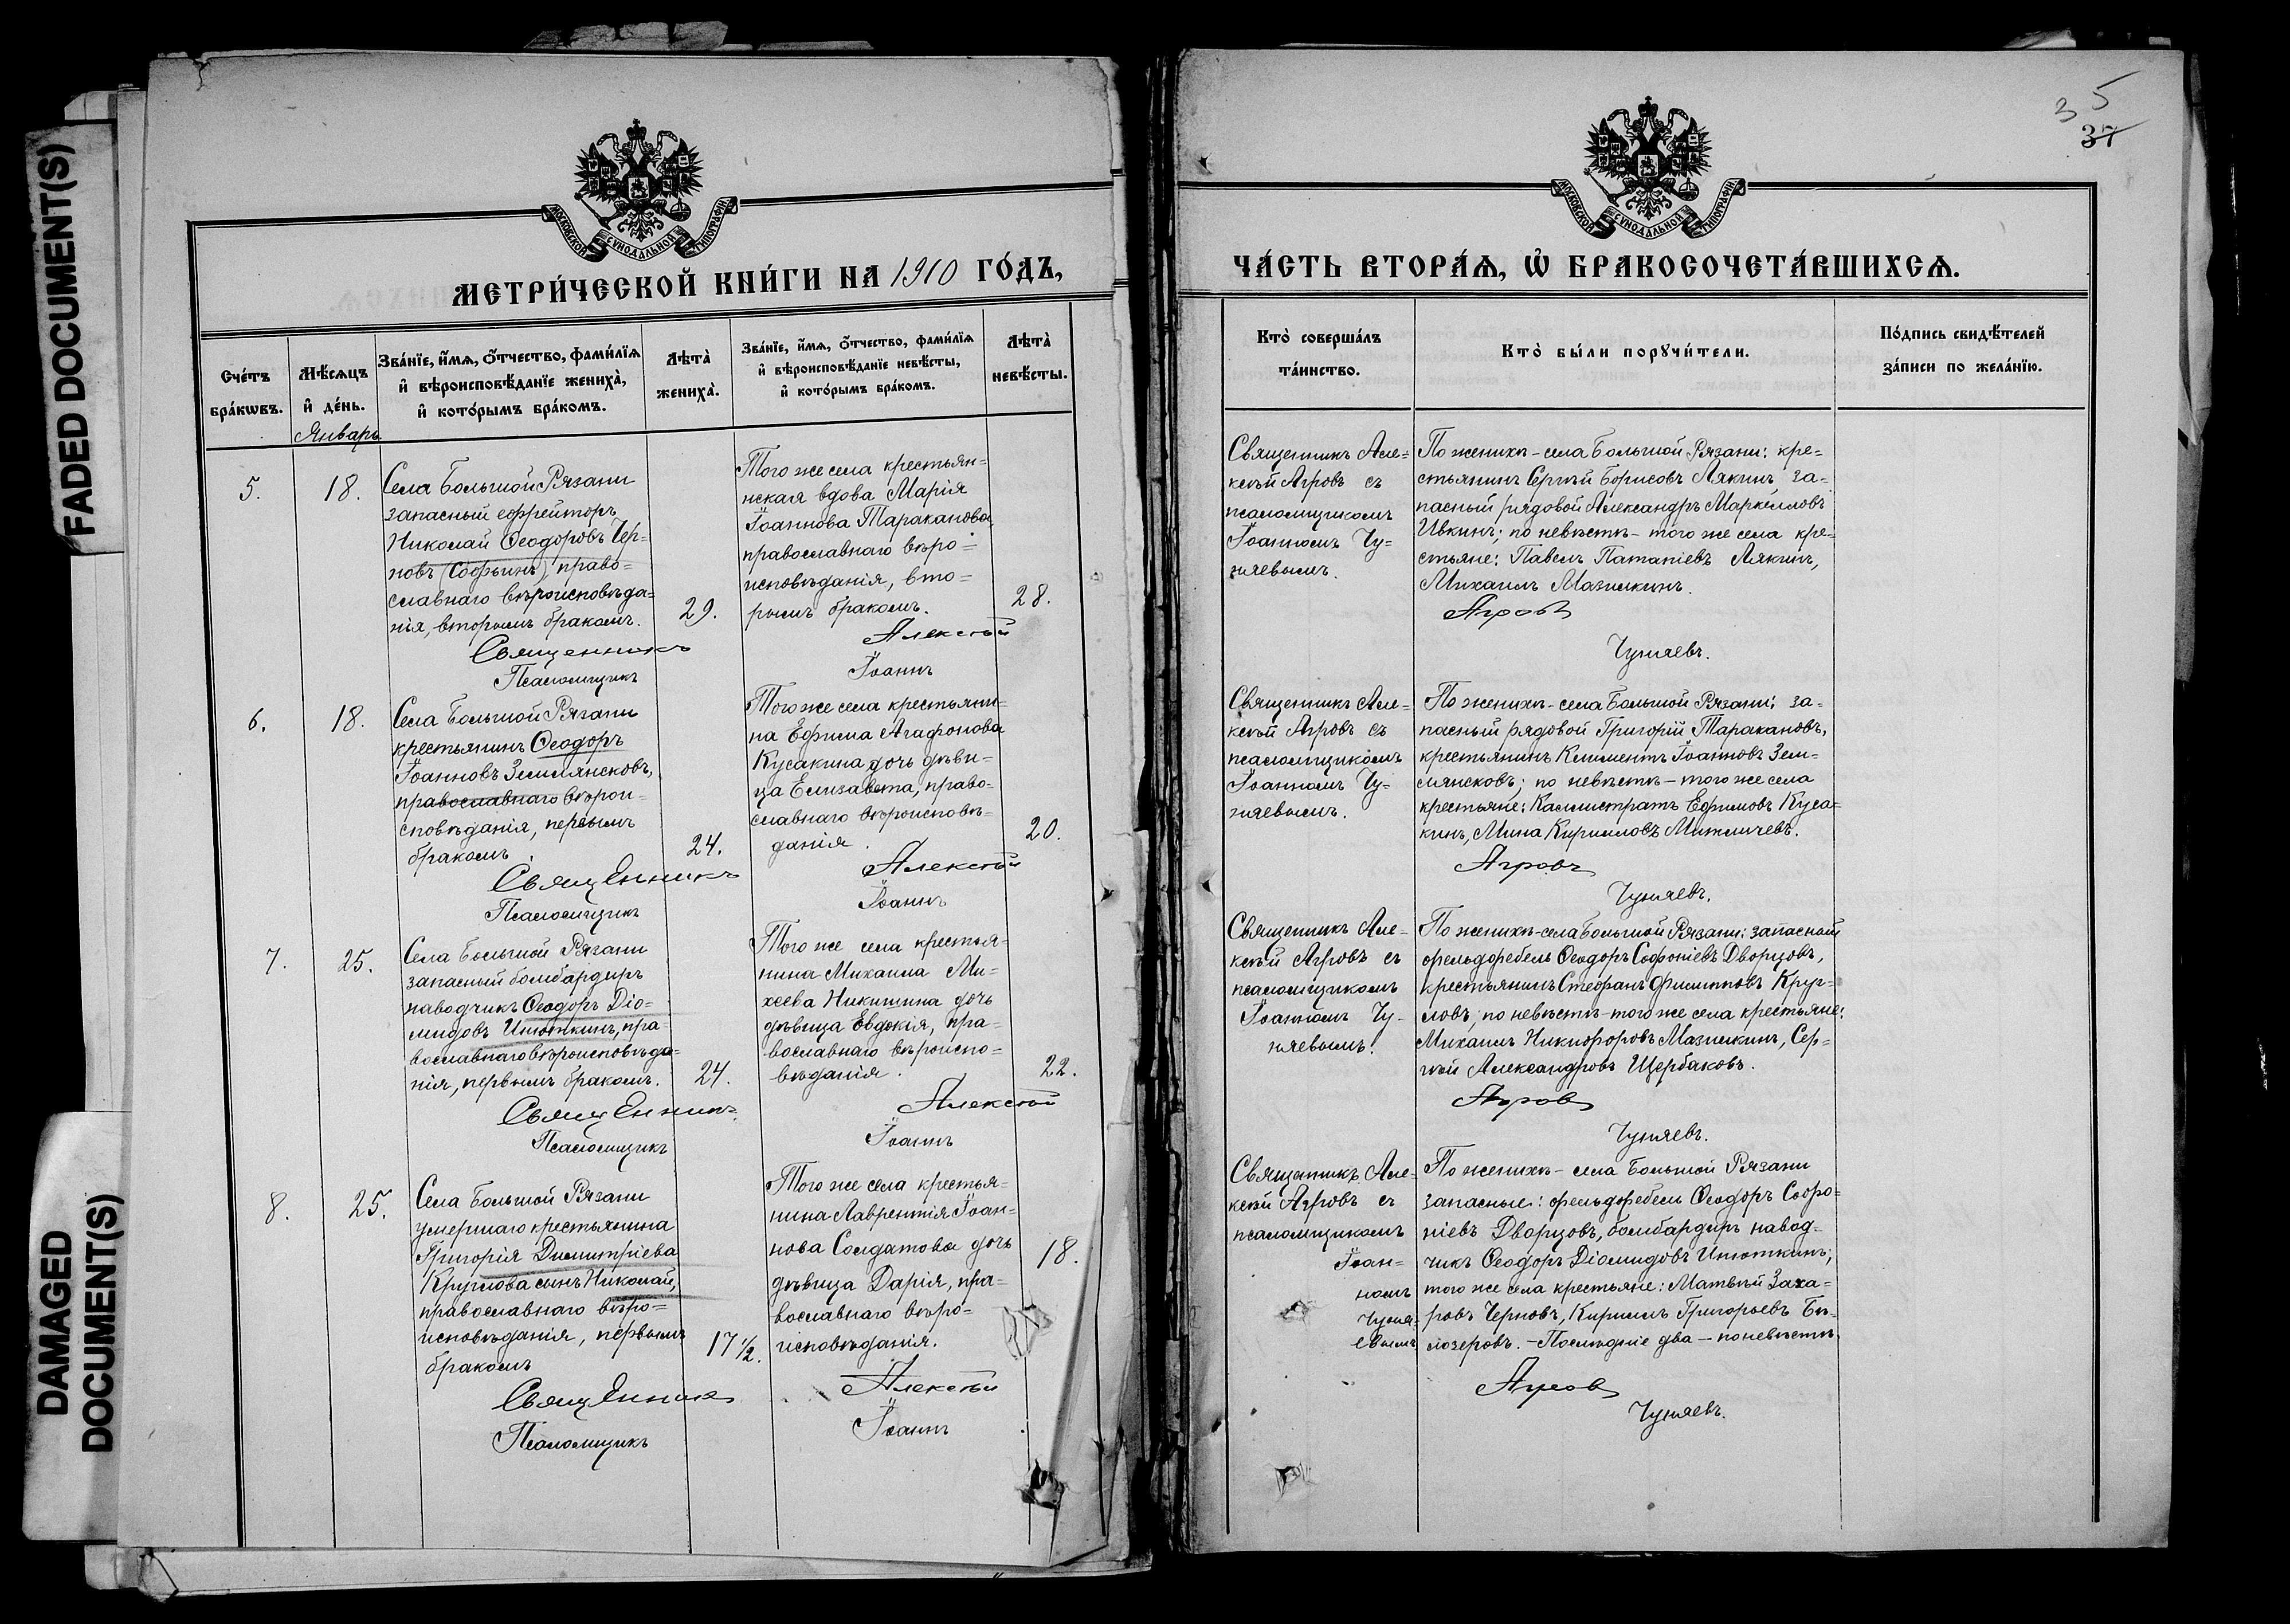 FADED DOCUMENT(S)
DAMAGED
DOCUMENT(S)
МОСКОВСКОЙ СѴНОДАЛЬНОЙ ТИПОГРАФІИ
МЕТРИ́ЧЕСКОЙ КНИ́ГИ НА 1910 ГО́ДЪ,
Сче́тъ
бра́кѡвъ.
Мѣ́сяцъ
и҆ де́нь.
Зва́нїе, и҆́мѧ, ѻ҆́тчество, фами́лїѧ
и҆ вѣроисповѣ́данїе жениха̀,
и҆ кото́рымъ бра́комъ.
Лѣта̀
жениха̀.
Зва́нїе, и҆́мѧ, ѻ҆́тчество, фами́лїѧ
и҆ вѣроисповѣ́данїе невѣ́сты,
и҆ кото́рымъ бра́комъ.
Лѣта̀
невѣ́сты.
Январь
5.
18.
Села Большой Рязани
запасный ефрейторъ
Николай Ѳеодоровъ Чер-
новъ (Софьинъ), право=
славнаго вѣроисповѣда=
нія, вторымъ бракомъ.
29.
Того же села крестьян=
нская вдова Марія
Іоаннова Тараканова,
православнаго вѣро=
исповѣданія, вто=
рымъ бракомъ.
28.
Священникъ Алексѣй
Псаломщикъ Іоаннъ
6.
18.
Села Большой Рязани
крестьянинъ Ѳеодоръ
Іоанновъ Землянсковъ,
православнаго вѣрои-
сповѣданія, первымъ
бракомъ.
24.
Того же села крестьяни-
на Ефима Агафонова
Кусакина дочь дѣви-
ца Елизавета, право-
славнаго вѣроисповѣ-
данія.
20.
Священникъ Алексѣй
Псаломщикъ Іоаннъ
7.
25.
Села Большой Рязани
запасный бомбардиръ
наводчикъ Ѳеодоръ Діо-
мидовъ Инюткинъ, пра-
вославнаго вѣроисповѣда-
нія, первымъ бракомъ.
24.
Того же села крестья-
нина Михаила Ми-
хеева Никишина дочь
дѣвица Евдокія, пра-
вославнаго вѣроиспо-
вѣданія.
22.
Священникъ Алексѣй
Псаломщикъ Іоаннъ
8.
25.
Села Большой Рязани
умершаго крестьянина
Григорія Димитріева
Круглова сынъ Николай,
православнаго вѣро=
исповѣданія, первымъ
бракомъ
17 1/2.
Того же села крестья-
нина Лаврентія Іоан-
нова Солдатова дочь
дѣвица Дарія, пра-
вославнаго вѣро-
исповѣданія.
18.
Священникъ Алексѣй
Псаломщикъ Іоаннъ
3 5
37
МОСКОВСКОЙ СѴНОДАЛЬНОЙ ТИПОГРАФІИ
ЧА́СТЬ ВТОРА́Ѧ, Ѡ҆ БРАКОСОЧЕТА́ВШИХСѦ.
Кто̀ соверша́лъ
та́инство.
Кто̀ бы́ли порꙋчи́тели.
По́дпись свидѣ́телей
за́писи по жела́нїю.
Священникъ Але=
ксѣй Агровъ съ
псаломщикомъ
Іоанномъ Чу-
няевымъ.
По женихѣ - села Большой Рязани: кре=
стьянинъ Сергѣй Борисовъ Лякинъ, за-
пасный рядовой Александръ Маркелловъ
Ивкинъ; по невѣстѣ - того же села кре-
стьяне: Павелъ Патапіевъ Лякинъ,
Михаилъ Мазилкинъ.
Агровъ
Чуняевъ.
Священникъ Але-
ксѣй Агровъ съ
псаломщикомъ
Іоанномъ Чу-
няевымъ.
По женихѣ - села Большой Рязани: за-
пасный рядовой Григорій Таракановъ,
крестьянинъ Климентъ Іоанновъ Зем-
лянсковъ; по невѣстѣ - того же села
крестьяне: Каллистратъ Ефимовъ Куса-
кинъ, Мина Кирилловъ Миткичевъ.
Агровъ
Чуняевъ.
Священникъ Але-
ксѣй Агровъ съ
псаломщикомъ
Іоанномъ Чу-
няевымъ.
По женихѣ - села Большой Рязани: запасный
фельдфебель Ѳеодоръ Софоніевъ Дворцовъ,
крестьянинъ Стефанъ Филипповъ Круг-
ловъ; по невѣстѣ - того же села крестьяне:
Михаилъ Никифоровъ Мазилкинъ, Сер-
гѣй Александровъ Щербаковъ.
Агровъ
Чуняевъ.
Священникъ Але-
ксѣй Агровъ съ
псаломщикомъ
Іоан-
номъ
Чуня-
евымъ
По женихѣ - села Большой Рязани
запасные: фельдфебель Ѳеодоръ Софо-
ніевъ Дворцовъ, бомбардиръ навод-
чикъ Ѳеодоръ Діомидовъ Инюткинъ;
того же села крестьяне: Матвѣй Заха-
ровъ Черновъ, Кириллъ Григорьевъ Бѣ-
лозеровъ. - Послѣдніе два - по невѣстѣ.
Агровъ
Чуняевъ.